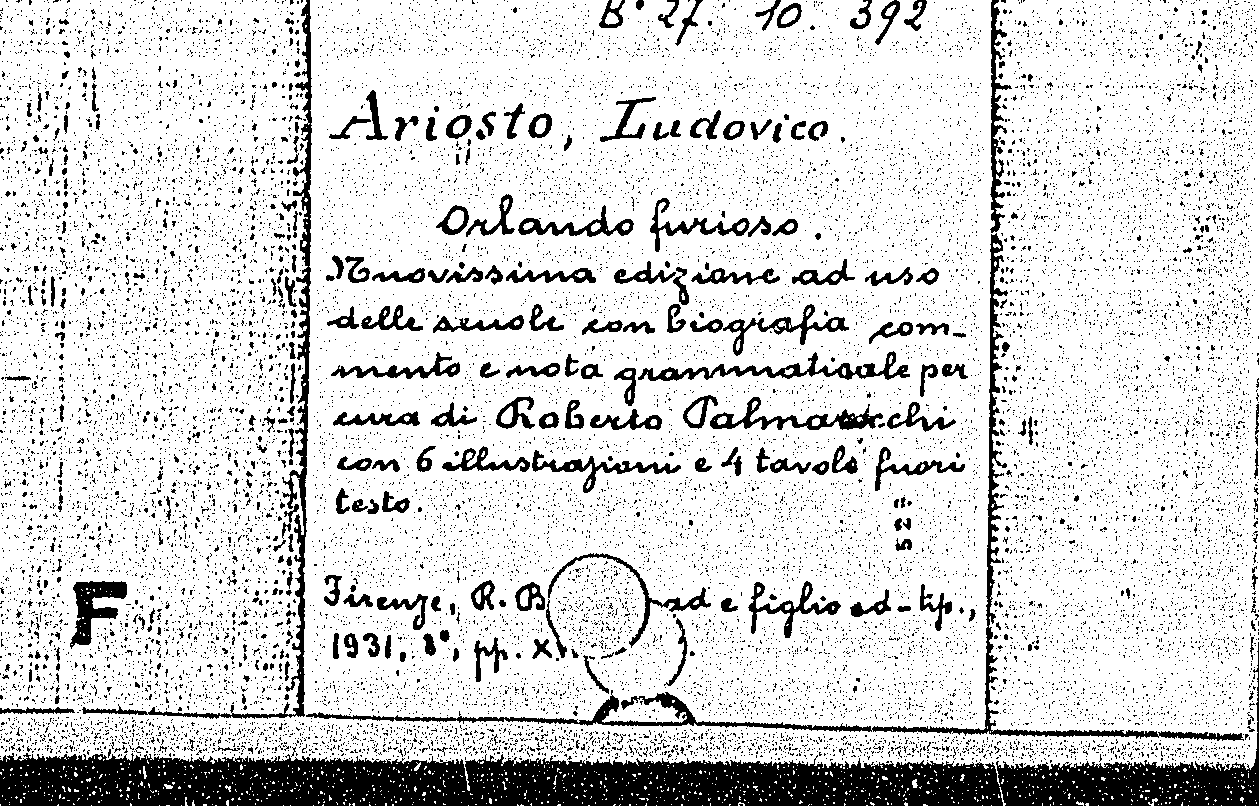 B° 27. 10. 392
Ariosto, Ludovico.
Orlando furioso.
Nuovissima edizione ad uso
delle scuole con biografia com-
mento e nota grammaticale per
cura di Roberto Palmarocchi
con 6 illustrazioni e 4 tavole fuori
testo.
52=
Firenze, R. B ad e figlio ed-tip.,
1931, 8°, pp. X
F